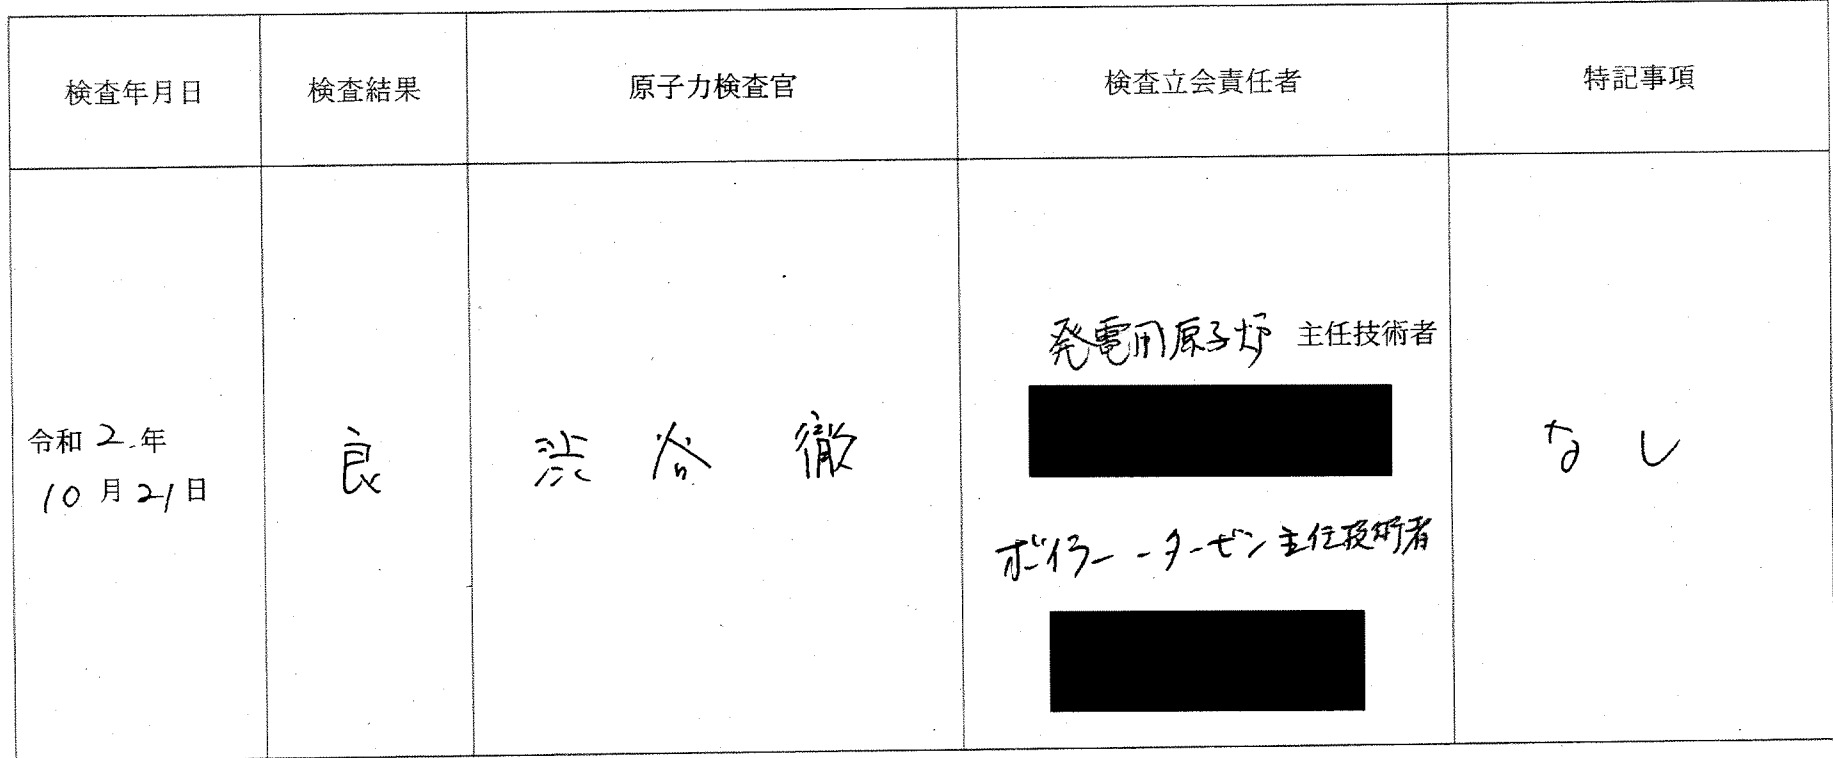 検査年月日 検査結果 原子力検査官 検査立会責任者 特記事項
令和 2 年
10 月 21 日
良
渋谷 徹
発電用原子炉 主任技術者
ボイラー・タービン主任技術者
なし